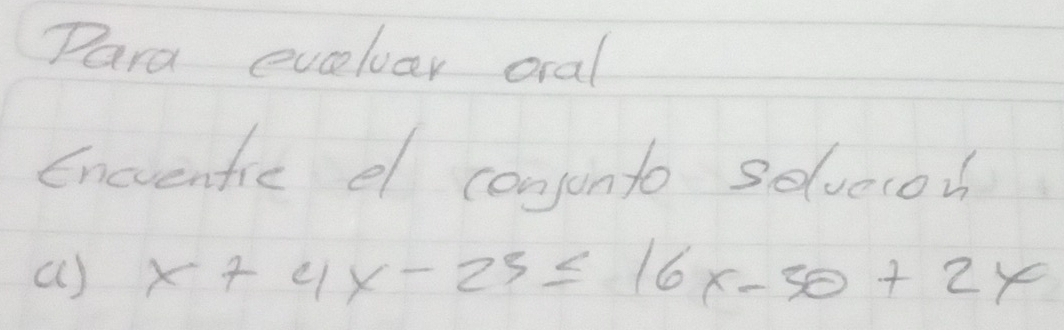 Para evaluar oral
Encuentre el conjunto solución
a) x + 4x - 25 ≤ 16x - 50 + 2x